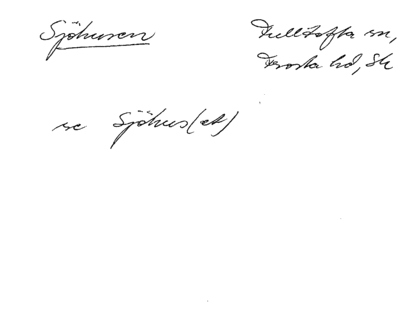 Sjöhusen
Gulltofta sn,
Frosta hd, Sk
se Sjöhus(et)